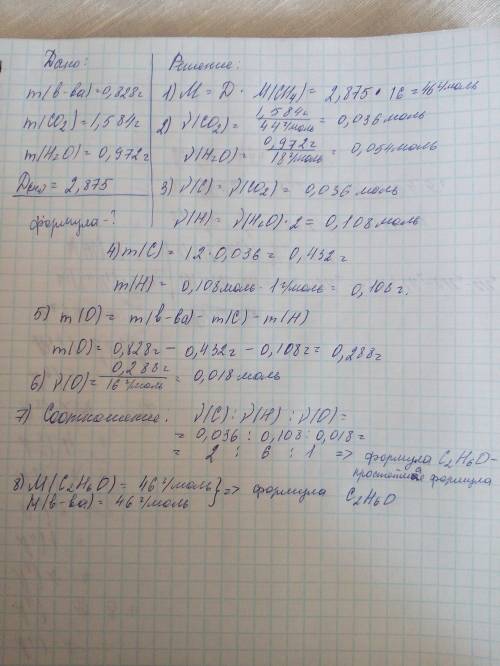 Дано:
m(в-ва)=0,828г
m(CO2)=1,584г
m(H2O)=0,972г
Dсн4 = 2,875
формула-?
Решение:
1) M = D · M(CH4) = 2,875 · 16 = 46 г/моль
2) ν(CO2) = 1,584г / 44 г/моль = 0,036 моль
ν(H2O) = 0,972г / 18 г/моль = 0,054 моль
3) ν(C) = ν(CO2) = 0,036 моль
ν(H) = ν(H2O)·2 = 0,108 моль
4) m(C) = 12·0,036 = 0,432 г
m(H) = 0,108 моль · 1 г/моль = 0,108 г.
5) m(O) = m(в-ва) - m(C) - m(H)
m(O) = 0,828г - 0,432г - 0,108г = 0,288г
6) ν(O) = 0,288г / 16 г/моль = 0,018 моль
7) Соотношение: ν(C) : ν(H) : ν(O) =
= 0,036 : 0,108 : 0,018 =
= 2 : 6 : 1 => формула C2H6O -
простейшая формула
8) M(C2H6O) = 46 г/моль } => формула C2H6O
M(в-ва) = 46 г/моль